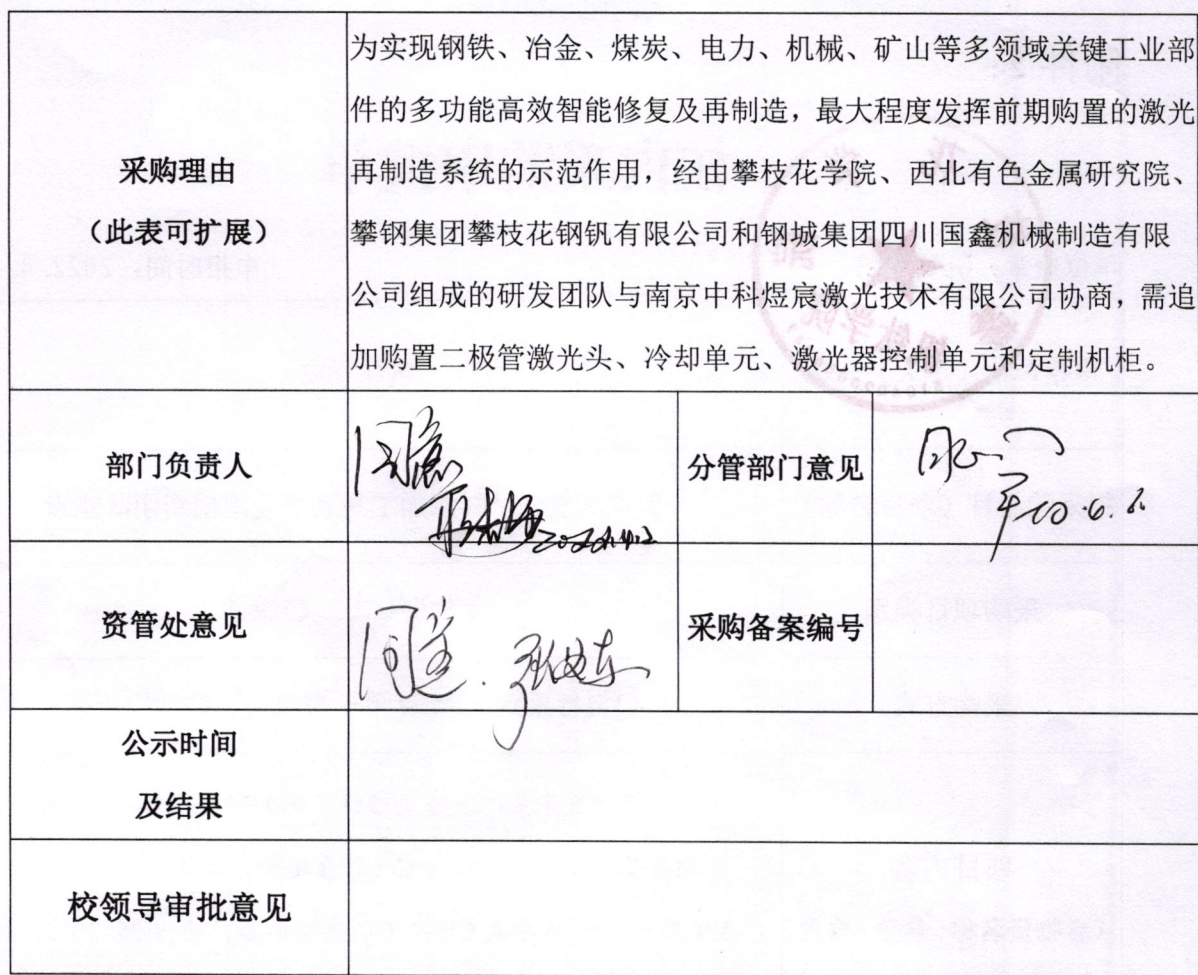 为实现钢铁、冶金、煤炭、电力、机械、矿山等多领域关键工业部
件的多功能高效智能修复及再制造，最大程度发挥前期购置的激光
采购理由
再制造系统的示范作用，经由攀枝花学院、西北有色金属研究院、
（此表可扩展）
攀钢集团攀枝花钢钒有限公司和钢城集团四川国鑫机械制造有限
公司组成的研发团队与南京中科煜宸激光技术有限公司协商，需追
加购置二极管激光头、冷却单元、激光器控制单元和定制机柜。
部门负责人
同意
分管部门意见
资管处意见
同意.
采购备案编号
公示时间
及结果
校领导审批意见